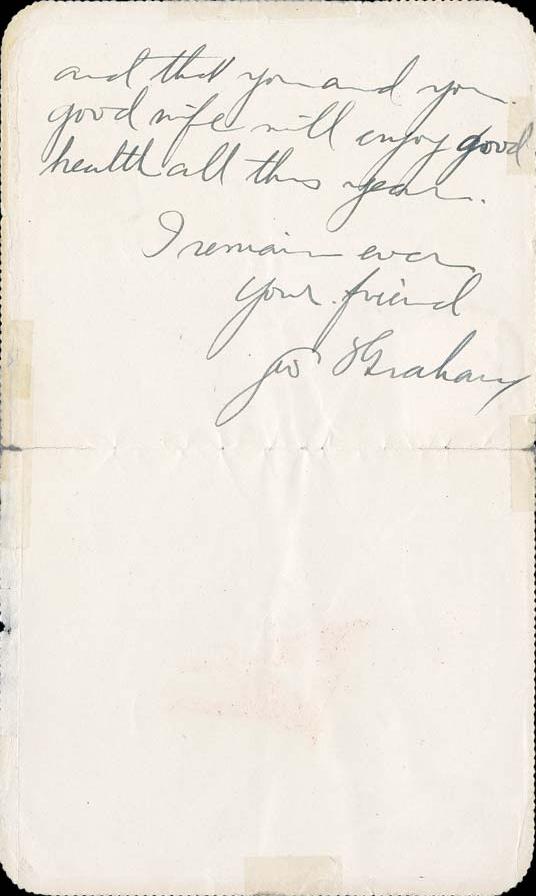 and that you and your
good wife will enjoy good
health all this year.
I remain ever
your friend
Geo Graham